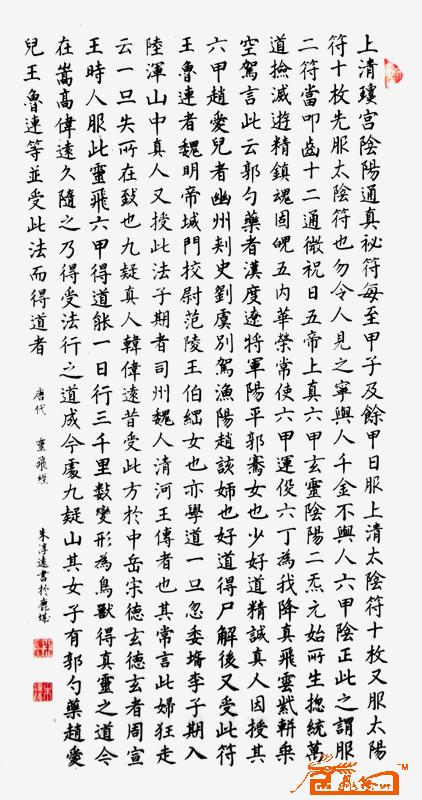 上清瓊宮陰陽通真祕符每至甲子及餘甲日服上清太陰符十枚又服太陽
符十枚先服太陰符也勿令人見之寧與人千金不與人六甲陰正此之謂服
二符當叩齒十二通微祝曰五帝上真六甲玄靈陰陽二炁元始所生揔統萬
道撿滅遊精鎮魂固魄五內華榮常使六甲運役六丁為我降真飛雲紫軿乘
空駕言此云郭勺藥者漢度遼將軍陽平郭騫女也少好道精誠真人因授其
六甲趙愛兒者幽州刾史劉虞別駕漁陽趙該姉也好道得尸解後又受此符
王魯連者魏明帝城門挍尉范陵王伯綱女也亦學道一旦忽委壻李子期入
陸渾山中真人又授此法子期者司州魏人清河王傳者也其常言此婦狂走
云一旦失所在致也九疑真人韓偉遠昔受此方於中岳宋德玄德玄者周宣
王時人服此靈飛六甲得道能一日行三千里數變形為鳥獸得真靈之道今
在嵩高偉遠久隨之乃得受法行之道成今處九疑山其女子有郭勺藥趙愛
兒王魯連等並受此法而得道者
唐代 靈飛經
朱淳遠書於鹿城